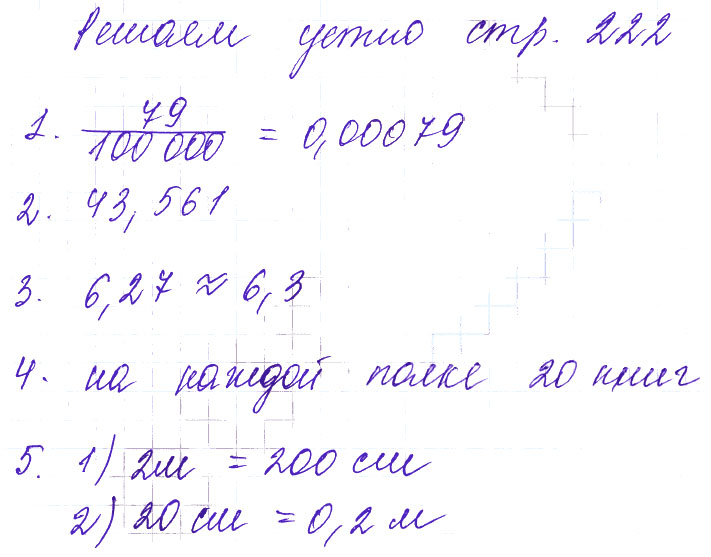 Решаем устно стр. 222
1. 79/100 000 = 0,00079
2. 43,561
3. 6,27 ≈ 6,3
4. на каждой полке 20 книг
5. 1) 2м = 200 см
2) 20 см = 0,2 м